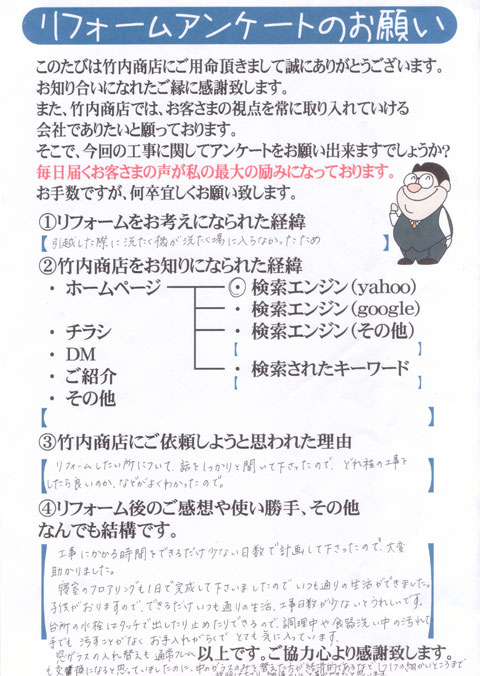 リフォームアンケートのお願い
このたびは竹内商店にご用命頂きまして誠にありがとうございます。
お知り合いになれたご縁に感謝致します。
また、竹内商店では、お客さまの視点を常に取り入れていける
会社でありたいと願っております。
そこで、今回の工事に関してアンケートをお願い出来ますでしょうか?
毎日届くお客さまの声が私の最大の励みになっております。
お手数ですが、何卒宜しくお願い致します。
①リフォームをお考えになられた経緯
【引越した際に洗たく機が洗たく場に入らなかったため】
②竹内商店をお知りになられた経緯
・ ホームページ ・ 検索エンジン(yahoo)
・ 検索エンジン(google)
・ チラシ ・ 検索エンジン(その他)
・ DM 【 】
・ ご紹介 ・ 検索されたキーワード
・ その他 【 】
【 】
③竹内商店にご依頼しようと思われた理由
リフォームしたい所について、話をしっかりと聞いて下さったので、どれ程の工事を
したら良いのか、などがよくわかったので。
④リフォーム後のご感想や使い勝手、その他
なんでも結構です。
工事にかかる時間をできるだけ少ない日数で計画して下さったので、大変
助かりました。
寝室のフロアリングも1日で完成して下さいましたのでいつも通りの生活ができました。
子供がおりますので、できるだけいつも通りの生活、工事日数が少ないとうれしいです。
台所の水栓はタッチで出したり止めたりできるので、調理中や食器洗い中の汚れた
手でも汚すことがなくお手入れがらくでとても気に入っています。
窓ガラスの入れ替えも通常
以上です。ご協力心より感謝致します。
も交換になると思っていましたのに、中のガラスのみを替えた方が経済的であるなど1つ1つの細かいところまで